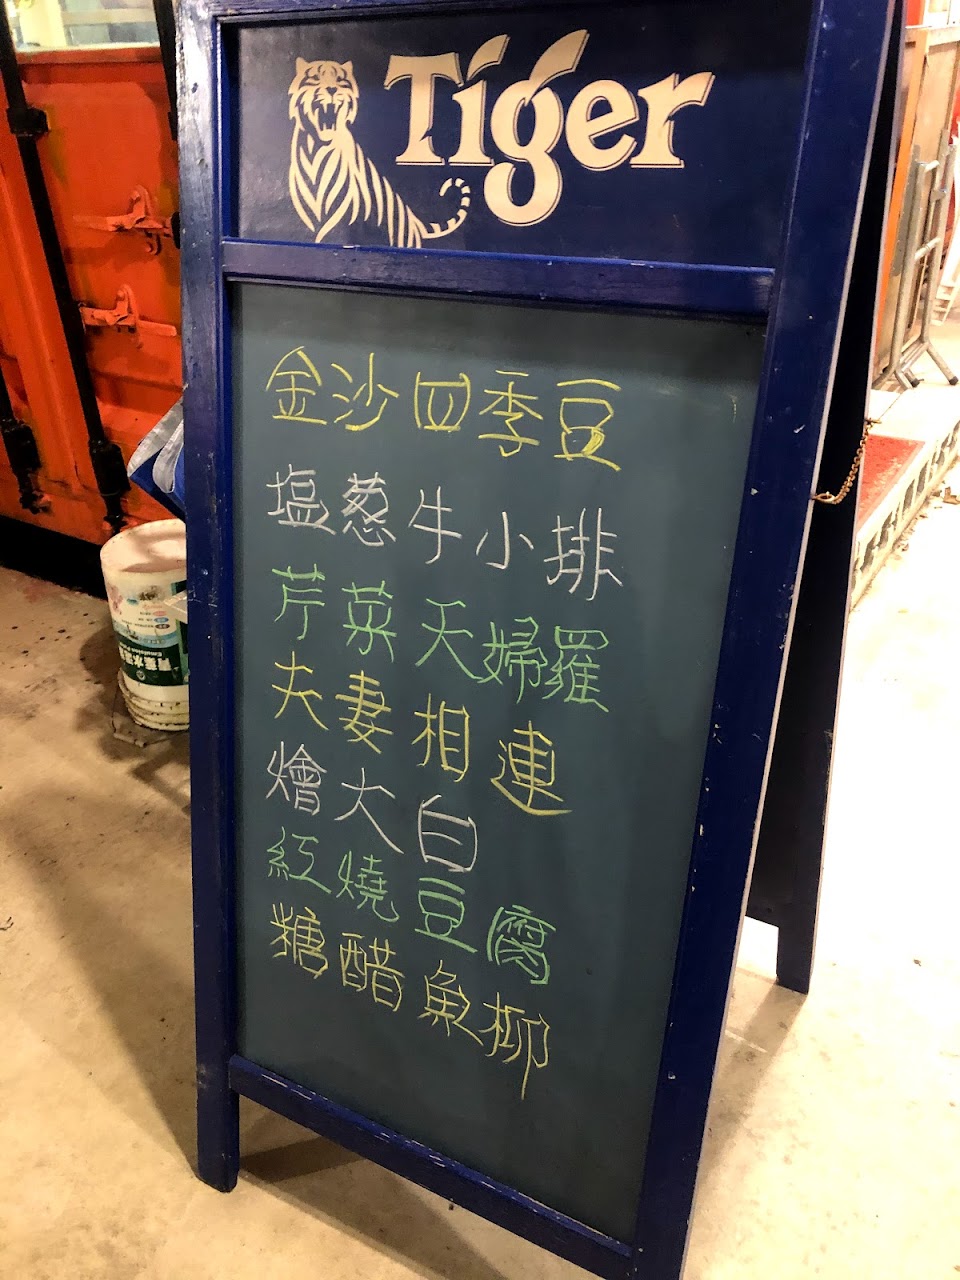 Tiger
金沙四季豆
塩葱牛小排
芹菜天婦羅
夫妻相連
燴大白
紅燒豆腐
糖醋魚柳